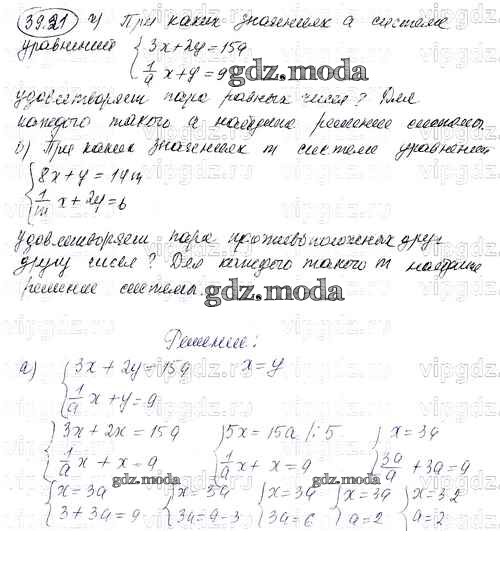 39.21 а) При каких значениях а система
уравнений { 3x+2y=15a
1/a x+y=9
gdz.moda
удовлетворяет пара равных чисел? Для
каждого такого а найдите решение системы.
б) При каких значениях m система уравнений
{ 8x+y=14m
1/m x+2y=6
удовлетворяет пара противоположных друг
другу чисел? Для каждого такого m найдите
решение системы.
gdz.moda
Решение:
а) { 3x+2y=15a x=y
1/a x+y=9
{ 3x+2x=15a { 5x=15a /:5 { x=3a
1/a x+x=9 1/a x+x=9 3a/a+3a=9
gdz.moda gdz.moda
{ x=3a { x=3a { x=3a { x=3a { x=3·2
3+3a=9 3a=9-3 3a=6 a=2 a=2